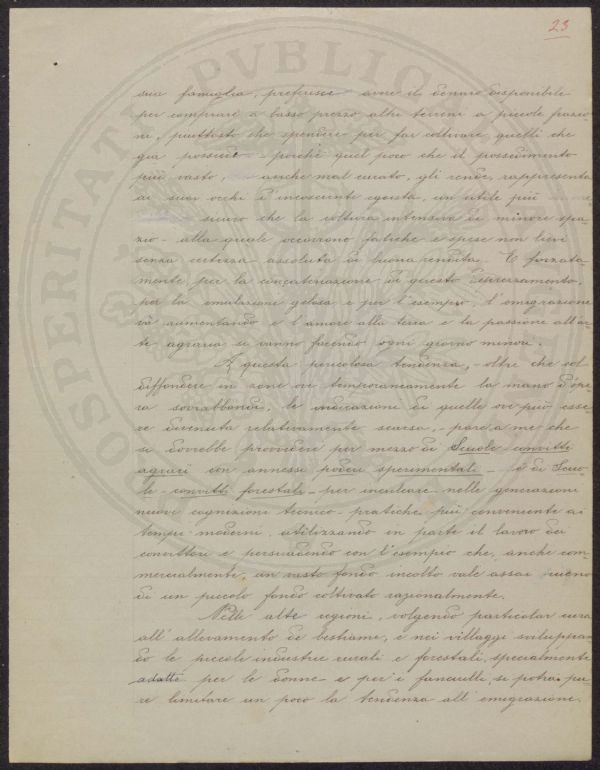 23
sua famiglia, preferisce avere il denaro disponibile
per comprare a basso prezzo altri terreni a piccole frazio
ni, piuttosto che spendere per far coltivare quelli che
già possiede - poichè quel poco che il possedimento
più vasto, anche mal curato, gli rende, rappresenta
ai suoi occhi d'incosciente egoista, un utile più
sicuro che la coltura intensiva di minore spa
zio - alla quale occorrono fatiche e spese non lievi
senza certezza assoluta di buona rendita. E forzata-
mente per la concatenazione di questo
per la emulazione gelosa e per l'esempio, l'emigrazione
và aumentando e l'amore alla terra e la passione all'ar-
te agraria si vanno facendo ogni giorno minori.
A questa pericolosa tendenza, - oltre che col
diffondere in zone ove temporaneamente la mano d'ope
ra sovrabbondi, le indicazioni di quelle ove può esse
re divenuta relativamente scarsa, - pare a me che
si dovrebbe provvedere per mezzo di Scuole convitti
agrari con annessi poderi sperimentali - o di Scuo-
le - convitti forestali - per inculcare nelle generazioni
nuove cognizioni tecnico - pratiche più conveniente ai
tempi moderni, utilizzando in parte il lavoro dei
convittori e persuadendo con l'esempio che, anche com-
mercialmente, un vasto fondo incolto vale assai meno
di un piccolo fondo coltivato razionalmente.
Nelle alte regioni, volgendo particolar cura
all'allevamento di bestiami, e nei villaggi sviluppan
do le piccole industrie rurali e forestali, specialmente
adatte per le donne e per i fanciulli, si potrà pu-
re limitare un poco la tendenza all'emigrazione.
PROSPERITAT PVBLICAE